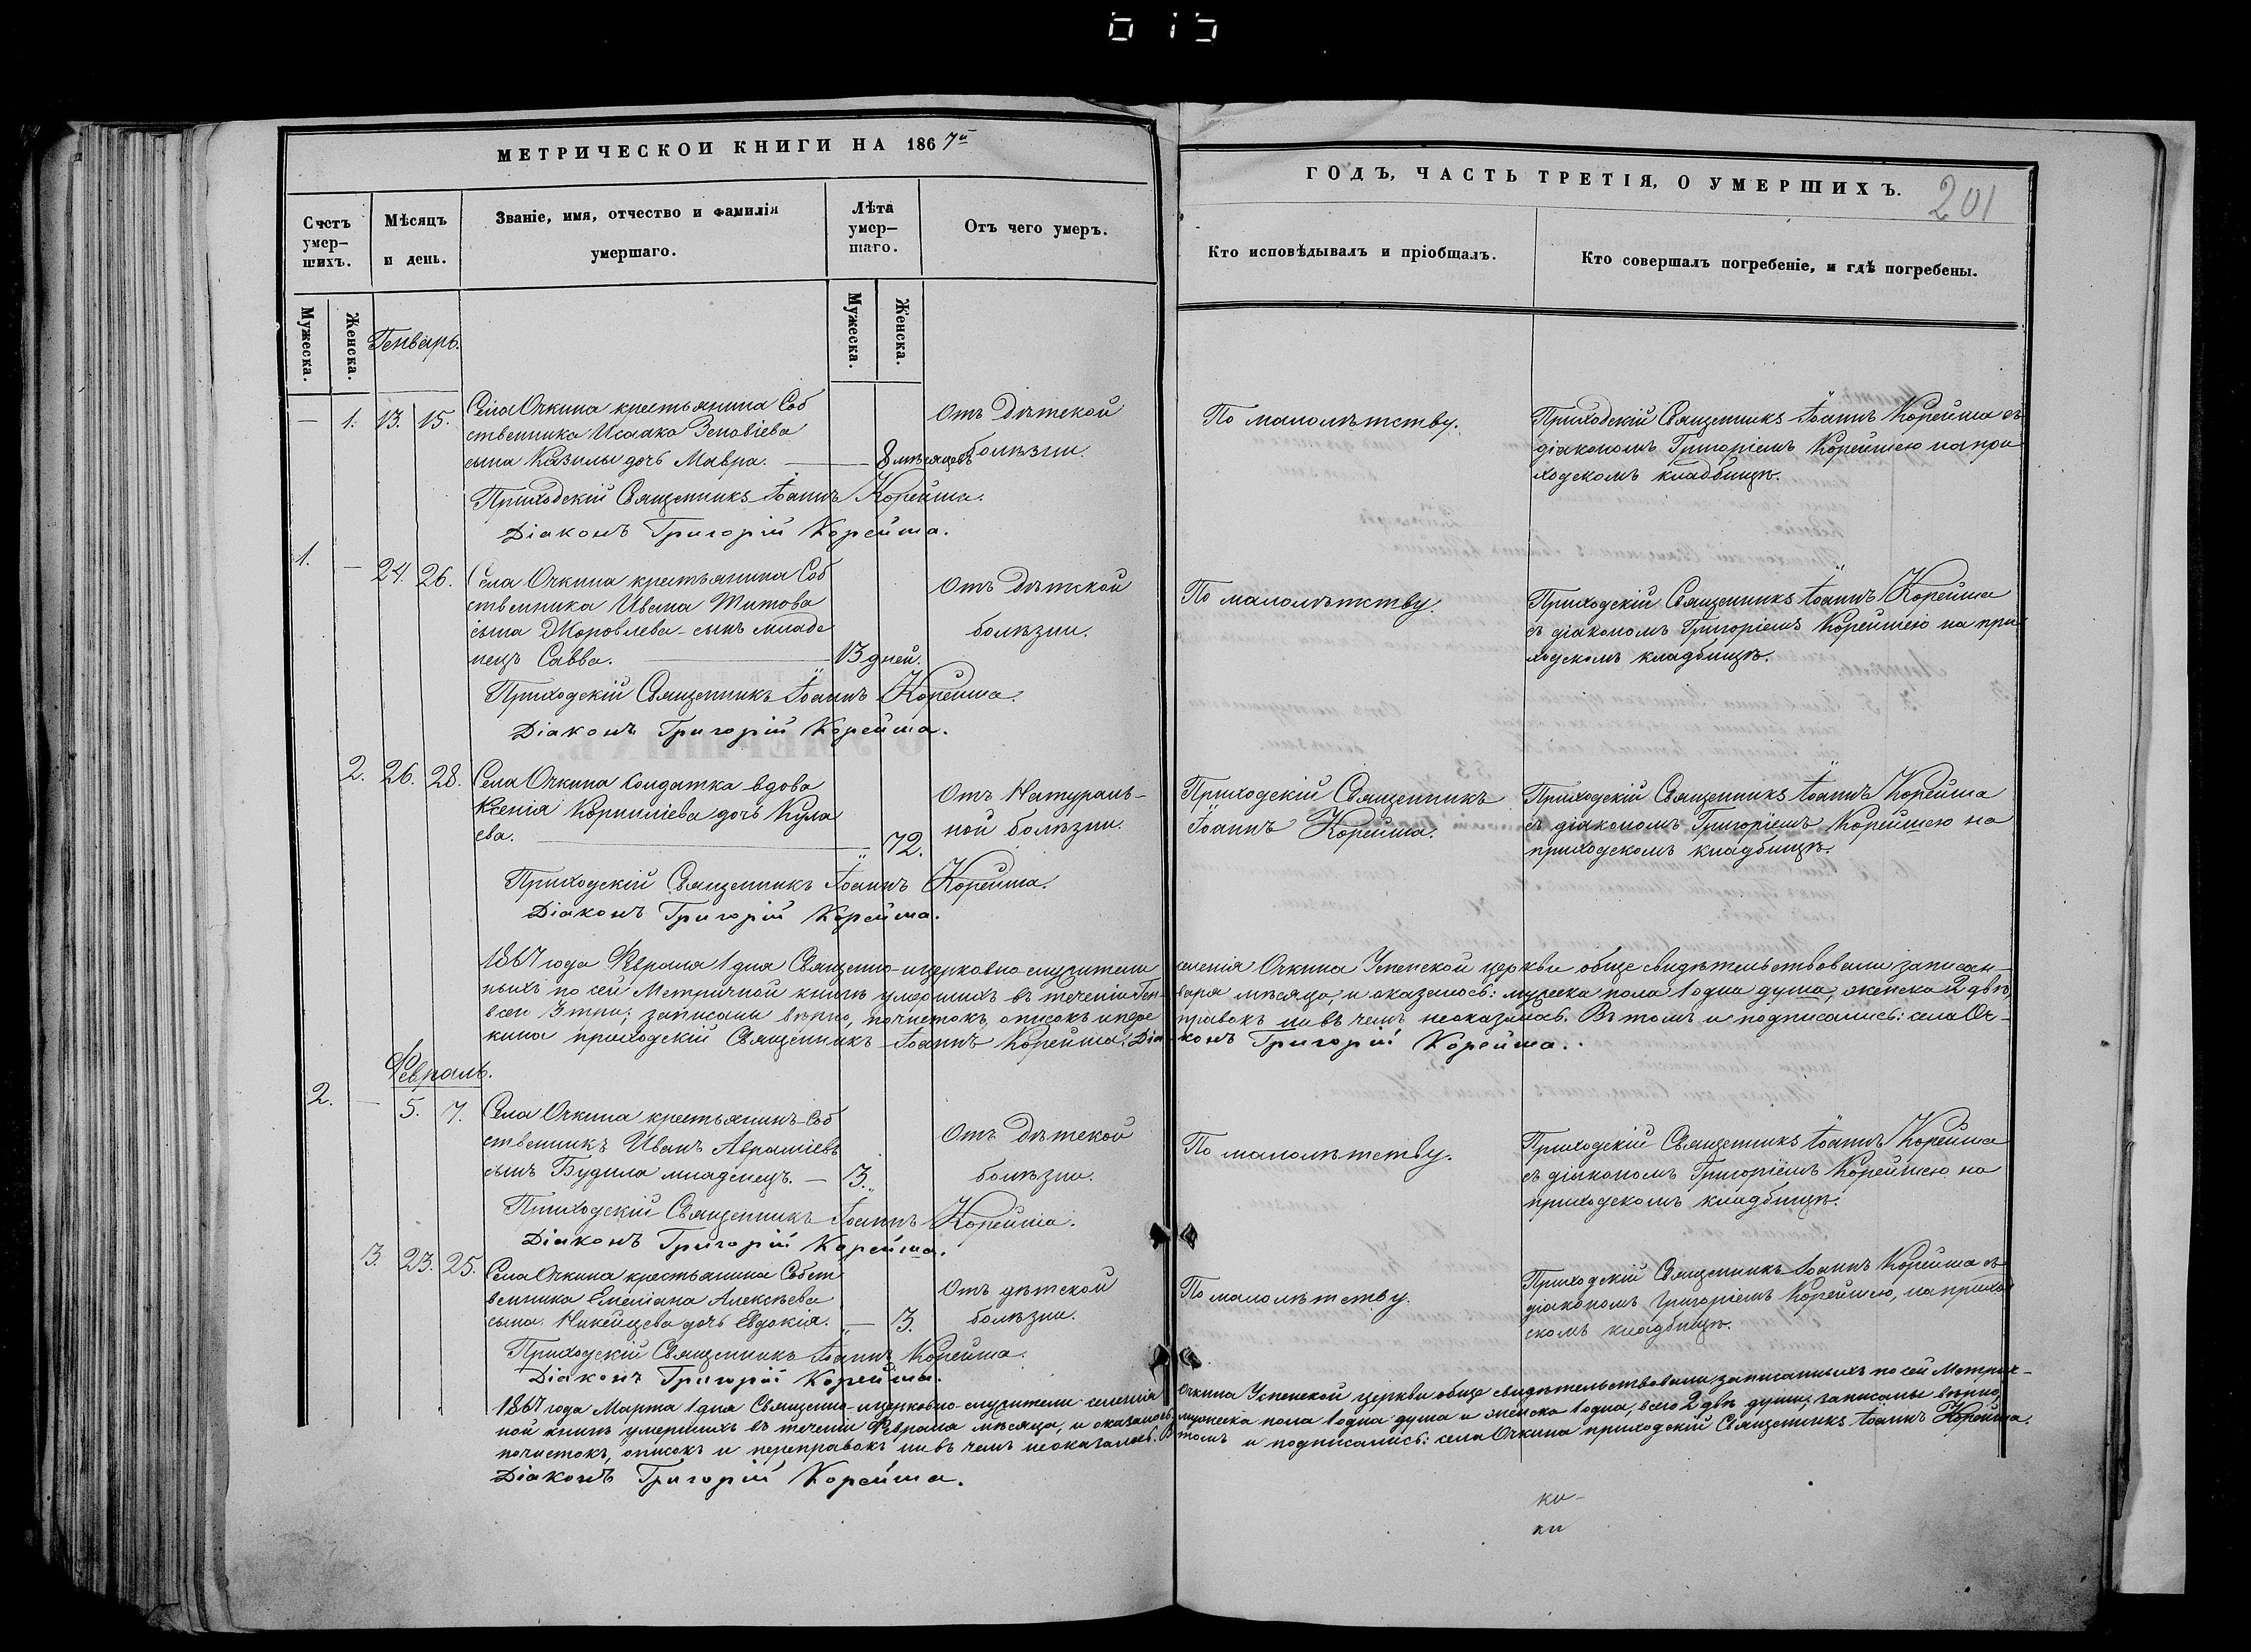 МЕТРИЧЕСКОЙ КНИГИ НА 1867й
ГОДЪ, ЧАСТЬ ТРЕТІЯ, О УМЕРШИХЪ.
201
Счетъ умер-шихъ.
Мѣсяцъ и день.
Званіе, имя, отчество и фамилія умершаго.
Лѣта умер-шаго.
Отъ чего умеръ.
Кто исповѣдывалъ и пріобщалъ.
Кто совершалъ погребеніе, и гдѣ погребены.
Мужеска.
Женска.
Мужеска.
Женска.
Генварь.
— 1. 13. 15.
Села Очкина крестьянина Соб
ственника Исаака Зеновіева
сына Казилы дочь Мавра. — 8 мѣсяцевъ
Отъ дѣтской
болѣзни.
По малолѣтству.
Приходскій Священникъ Іоаннъ Корейша съ
діакономъ Григоріемъ Корейшею на при
ходскомъ кладбищѣ.
Приходскій Священникъ Іоаннъ Корейша.
Діаконъ Григорій Корейша.
1. — 24. 26.
Села Очкина крестьянина Соб
ственника Ивана Титова
сына Журовлева сынъ младе
нецъ Савва. — 13 дней.
Отъ дѣтской
болѣзни.
По малолѣтству.
Приходскій Священникъ Іоаннъ Корейша
съ діакономъ Григоріемъ Корейшею на при
ходскомъ кладбищѣ.
Приходскій Священникъ Іоаннъ Корейша.
Діаконъ Григорій Корейша.
2. 26. 28.
Села Очкина солдатка вдова
Ксенія Корниліева дочь Кула
ева. — „ 72.
Отъ Натураль-
ной болѣзни.
Приходскій Священникъ
Іоаннъ Корейша.
Приходскій Священникъ Іоаннъ Корейша
съ діакономъ Григоріемъ Корейшею на
приходскомъ кладбищѣ.
Приходскій Священникъ Іоаннъ Корейша.
Діаконъ Григорій Корейша.
1867 года Февраля 1 дня Священно-и церковно-служители селенія Очкина Успенской церкви обще свидѣтельствовали записан-
ныхъ по сей Метричной книгѣ умершихъ въ теченіи Ген-варя мѣсяца, и оказалось: мужеска пола 1 одна душа, женска 2 двѣ,
всеи 3 три; записаны вѣрно, почистокъ, описокъ и пере правокъ ни въ чемъ неоказалось. Въ томъ и подписались: села Оч-
кина приходскій Священникъ Іоаннъ Корейша. Діа-конъ Григорій Корейша.
Февраль.
2. — 5. 7.
Села Очкина крестьянинъ-Соб
ственникъ Иванъ Авраміевъ
сынъ Будила младенецъ. — 3. „
Отъ дѣтской
болѣзни.
По малолѣтству.
Приходскій Священникъ Іоаннъ Корейша
съ діакономъ Григоріемъ Корейшею на
приходскомъ кладбищѣ.
Приходскій Священникъ Іоаннъ Корейша.
Діаконъ Григорій Корейша.
3. 23. 25.
Села Очкина крестьянина Собст
венника Емеліана Алексѣева
сына дочь Евдокія. „ — 3.
Отъ дѣтской
болѣзни.
По малолѣтству.
Приходскій Священникъ Іоаннъ Корейша съ
діакономъ Григоріемъ Корейшею, на приход
скомъ кладбищѣ.
Приходскій Священникъ Іоаннъ Корейша.
Діаконъ Григорій Корейша.
1867 года Марта 1 дня Священно-и церковно-служители селенія Очкина Успенской церкви обще свидѣтельствовали записанныхъ по сей Метрич-
ной книгѣ умершихъ въ теченіи Февраля мѣсяца, и оказалось, мужеска пола 1 одна душа и женска 1 одна, всего 2 двѣ души; записаны вѣрно,
почистокъ, описокъ и переправокъ ни въ чемъ неоказалось. Въ томъ и подписались: села Очкина приходскій Священникъ Іоаннъ Корейша.
Діаконъ Григорій Корейша.
ко-
ки